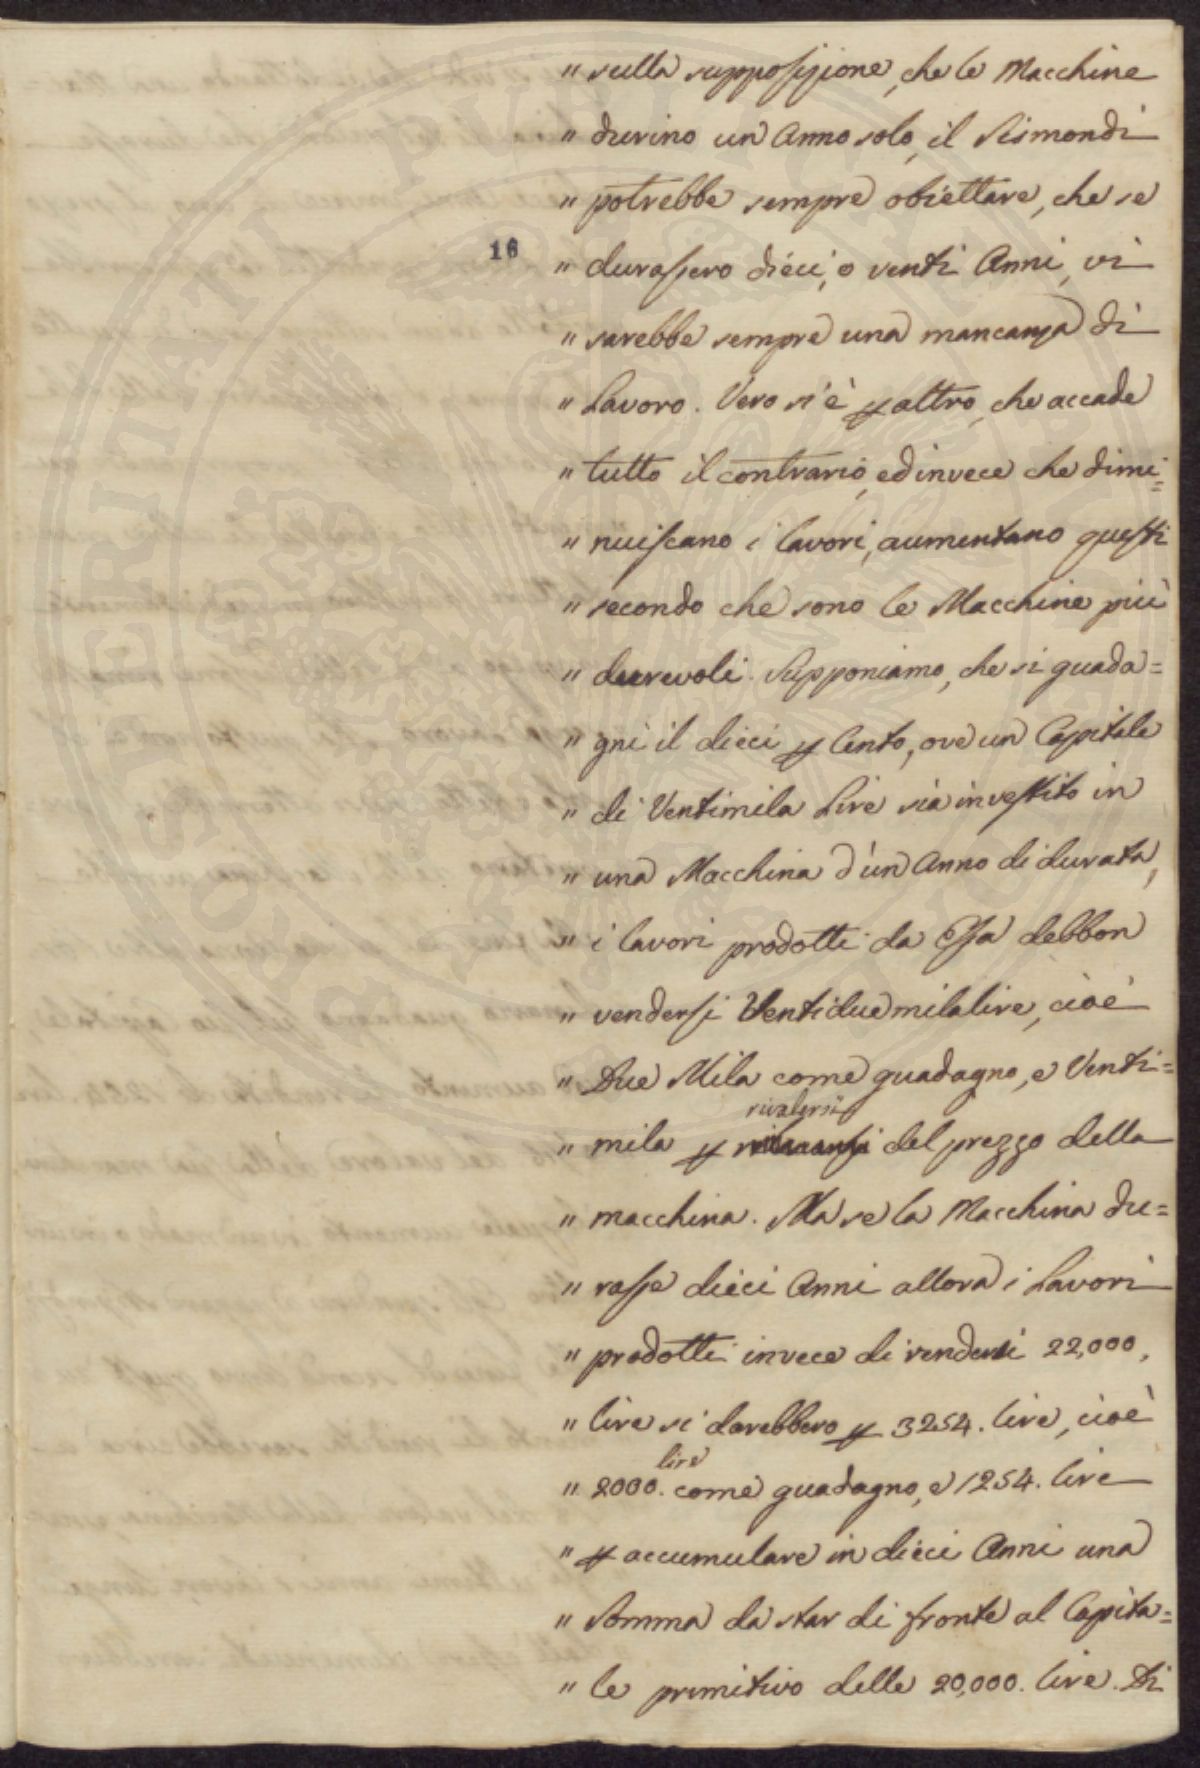 " sulla supposizione, che le Macchine
" durino un Anno solo, il Sismondi
" potrebbe sempre obiettare, che se
16
" durassero dieci, o venti Anni, vi
" sarebbe sempre una mancanza di
" Lavoro. Vero si è p altro, che accade
" tutto il contrario, ed invece che dimi=
" nuiscano i lavori, aumentano questi
" secondo che sono le Macchine più
" durevoli. Supponiamo, che si guada=
" gni il dieci p Cento, ove un Capitale
" di Ventimila Lire sia investito in
" una Macchina d'un Anno di durata,
" i lavori prodotti da Essa debbon
" vendersi Ventiduemilalire, cioè
" Due Mila come guadagno, e Venti=
rivalersi
" mila p del prezzo della
" macchina. Ma se la Macchina du=
" rasse dieci Anni allora i Lavori
" prodotti invece di vendersi 22,000,
" lire si darebbero p 3254. lire, cioè
lire
" 2000. come guadagno, e 1254. lire
" p accumulare in dieci Anni una
" Somma da star di fronte al Capita=
" le primitivo delle 20,000. lire. Di